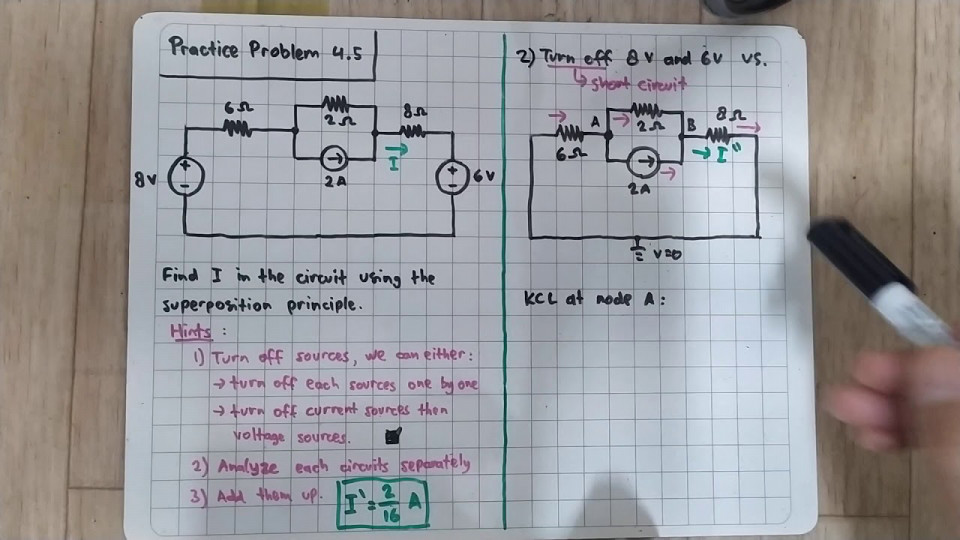 Practice Problem 4.5
6Ω
2Ω
8Ω
I
2A
8V
6V
Find I in the circuit using the
superposition principle.
Hints :
1) Turn off sources, we can either:
→ turn off each sources one by one
→ turn off current sources then
voltage sources.
2) Analyze each circuits separately
3) Add them up.
I' = 2/16 A
2) Turn off 8V and 6V VS.
↳ short circuit
A
2Ω
B
8Ω
6Ω
I"
2A
V=0
KCL at node A: